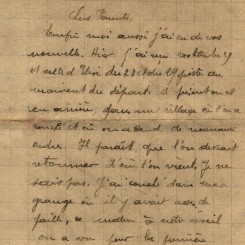 Chers Parents,
Enfin moi aussi j'ai eu de vos
nouvelle. Hier j'ai eu
et celle d' du 28 et du 29 poste au
moment du départ d'
en arrière, dans un village où l'on a
couché et où on attend de nouveaux
ordres. Il parait, que l'on devait
retourner d'où l'on vient. Je ne
sais pas. J'ai couché dans une
grange où il y avait assez de
paille, ce matin à notre réveil
on a vu pour la première